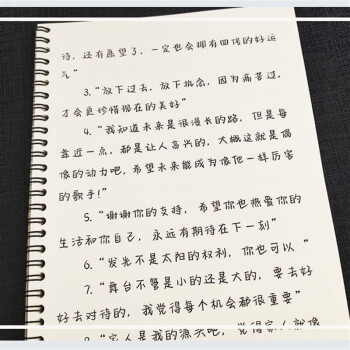 待，还有愿望了，一定也会拥有四倍的好运
气”
3.“放下过去，放下执念，因为痛苦过，
才会更珍惜现在的美好”
4.“我知道未来是很漫长的路，但是每
靠近一点，都是让人高兴的，大概这就是偶
像的动力吧，希望未来能成为像他一样厉害
的歌手！”
5.“谢谢你的支持，希望你也热爱你的
生活和你自己，永远有期待在下一刻”
6.“发光不是太阳的权利，你也可以”
7.“舞台不管是小的还是大的，要去好
好去对待的，我觉得每个机会都很重要”
8.“家人是我的源头吧，觉得家人就像